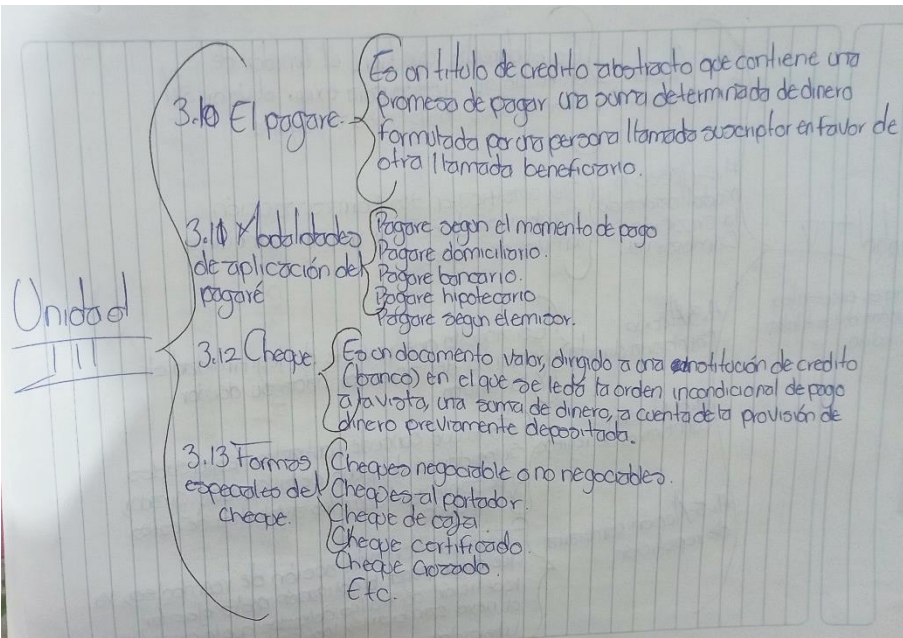 Unidad
III
3.10 El pagare.
Es un titulo de credito abstracto que contiene una
promesa de pagar una suma determinada de dinero
formulada por una persona llamada suscriptor en favor de
otra llamada beneficiario.
3.10 Modalidades
de aplicación del
pagaré
Pagare segun el momento de pago
Pagare domiciliario.
Pagare bancario.
Pagare hipotecario
Pagare segun el emisor.
3.12 Cheque
Es un documento valor, dirigido a una institución de credito
(banco) en el que se le da la orden incondicional de pago
a la vista, una suma de dinero, a cuenta de la provisión de
dinero previamente depositada.
3.13 Formas
especiales del
cheque.
Cheques negociable o no negociables.
Cheques al portador.
Cheque de caja
Cheque certificado.
Cheque cruzado.
Etc.